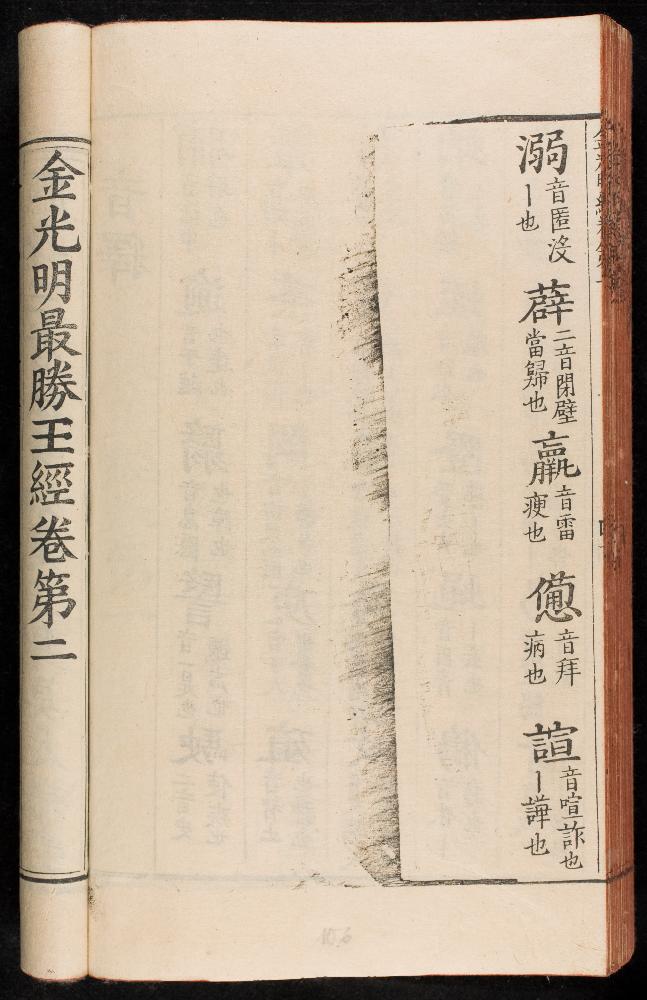 溺音匿沒丨也薜二音閉壁當歸也羸音雷瘦也憊音拜病也諠音喧詐也丨譁也
金光明最勝王經卷第二